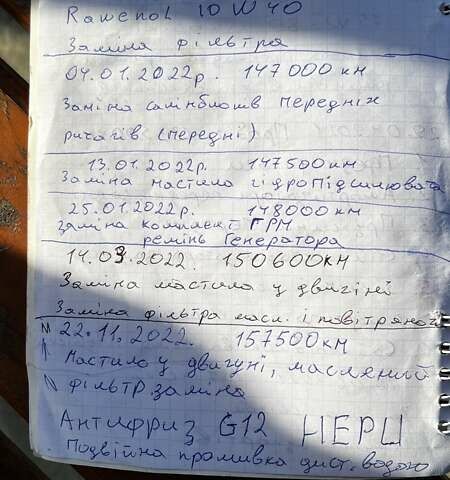 Rawenol 10W40
Заміна фільтра
04.01.2022р. 147000 км
Заміна салінблоків передніх
ричагів (передні)
13.01.2022р. 147500км
Заміна мастило гідропідсилювача
25.01.2022р. 148000км
Заміна комплект ГРМ
ремінь Генератора
14.03.2022. 150600км
Заміна мастила у двигіні
Заміна фільтра масл. і повітряной
22.11.2022. 157500км
Мастило у двигуні, масляний
фільтр заміна
Антифриз G12
Подвійна промивка дист. водою